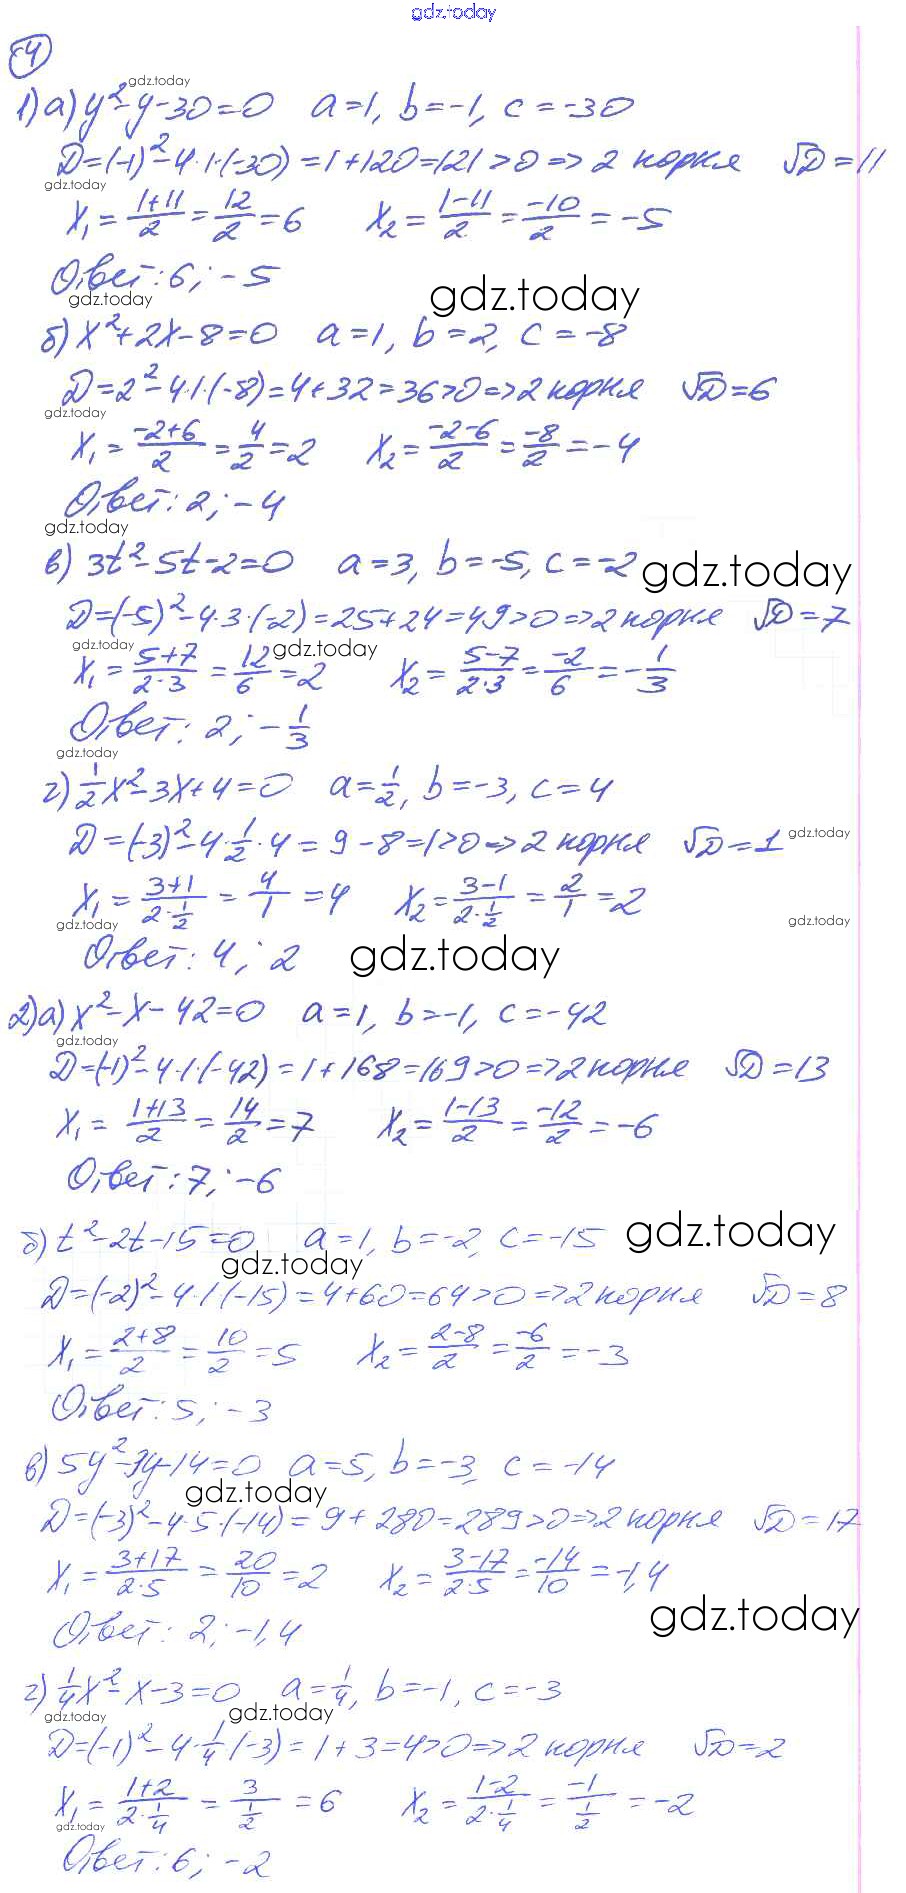 gdz.today
④
gdz.today
1) а) y² - y - 30 = 0   a = 1, b = -1, c = -30
D = (-1)² - 4·1·(-30) = 1 + 120 = 121 > 0 => 2 корня   √D = 11
gdz.today
x₁ = (1+11)/2 = 12/2 = 6   x₂ = (1-11)/2 = -10/2 = -5
Ответ: 6; -5
gdz.today
gdz.today
б) x² + 2x - 8 = 0   a = 1, b = 2, c = -8
D = 2² - 4·1·(-8) = 4 + 32 = 36 > 0 => 2 корня   √D = 6
gdz.today
x₁ = (-2+6)/2 = 4/2 = 2   x₂ = (-2-6)/2 = -8/2 = -4
Ответ: 2; -4
gdz.today
в) 3t² - 5t - 2 = 0   a = 3, b = -5, c = -2
gdz.today
D = (-5)² - 4·3·(-2) = 25 + 24 = 49 > 0 => 2 корня   √D = 7
gdz.today
gdz.today
x₁ = (5+7)/(2·3) = 12/6 = 2   x₂ = (5-7)/(2·3) = -2/6 = -1/3
Ответ: 2; -1/3
gdz.today
г) 1/2 x² - 3x + 4 = 0   a = 1/2, b = -3, c = 4
D = (-3)² - 4·1/2·4 = 9 - 8 = 1 > 0 => 2 корня   √D = 1
gdz.today
x₁ = (3+1)/(2·1/2) = 4/1 = 4   x₂ = (3-1)/(2·1/2) = 2/1 = 2
gdz.today
gdz.today
Ответ: 4; 2
gdz.today
2) а) x² - x - 42 = 0   a = 1, b = -1, c = -42
gdz.today
D = (-1)² - 4·1·(-42) = 1 + 168 = 169 > 0 => 2 корня   √D = 13
x₁ = (1+13)/2 = 14/2 = 7   x₂ = (1-13)/2 = -12/2 = -6
Ответ: 7; -6
б) t² - 2t - 15 = 0   a = 1, b = -2, c = -15
gdz.today
gdz.today
D = (-2)² - 4·1·(-15) = 4 + 60 = 64 > 0 => 2 корня   √D = 8
x₁ = (2+8)/2 = 10/2 = 5   x₂ = (2-8)/2 = -6/2 = -3
Ответ: 5; -3
в) 5y² - 3y - 14 = 0   a = 5, b = -3, c = -14
gdz.today
D = (-3)² - 4·5·(-14) = 9 + 280 = 289 > 0 => 2 корня   √D = 17
x₁ = (3+17)/(2·5) = 20/10 = 2   x₂ = (3-17)/(2·5) = -14/10 = -1,4
gdz.today
Ответ: 2; -1,4
г) 1/4 x² - x - 3 = 0   a = 1/4, b = -1, c = -3
gdz.today
gdz.today
D = (-1)² - 4·1/4·(-3) = 1 + 3 = 4 > 0 => 2 корня   √D = 2
x₁ = (1+2)/(2·1/4) = 3/(1/2) = 6   x₂ = (1-2)/(2·1/4) = -1/(1/2) = -2
gdz.today
Ответ: 6; -2